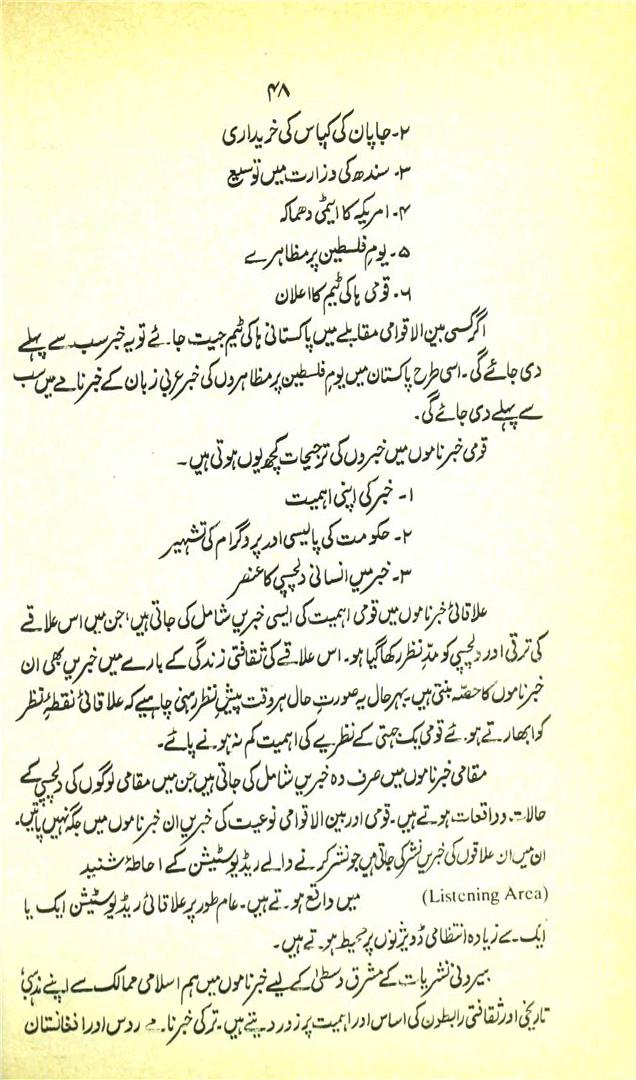 ۴۸
۲۔ جاپان کی کپاس کی خریداری
۳۔ سندھ کی وزارت میں توسیع
۴۔ امریکہ کا ایٹمی دھماکہ
۵۔ یومِ فلسطین پر مظاہرے
۶۔ قومی ہاکی ٹیم کا اعلان
اگر کسی بین الاقوامی مقابلے میں پاکستانی ہاکی ٹیم جیت جائے تو یہ خبر سب سے پہلے
دی جائے گی۔ اسی طرح پاکستان میں یومِ فلسطین پر مظاہروں کی خبر عربی زبان کے خبرنامے میں سب
سے پہلے دی جائے گی۔
قومی خبرناموں میں خبروں کی ترجیحات کچھ یوں ہوتی ہیں۔
۱۔ خبر کی اپنی اہمیت
۲۔ حکومت کی پالیسی اور پروگرام کی تشہیر
۳۔ خبر میں انسانی دلچسپی کا عنصر
علاقائی خبرناموں میں قومی اہمیت کی ایسی خبریں شامل کی جاتی ہیں، جن میں اس علاقے
کی ترقی اور دلچسپی کو مدِّ نظر رکھا گیا ہو۔ اس علاقے کی ثقافتی زندگی کے بارے میں خبریں بھی ان
خبرناموں کا حصّہ بنتی ہیں۔ بہرحال یہ صورتِ حال ہر وقت پیشِ نظر رہنی چاہیے کہ علاقائی نقطۂ نظر
کو ابھارتے ہوئے قومی یک جہتی کے نظریے کی اہمیت کم نہ ہونے پائے۔
مقامی خبرناموں میں صرف وہ خبریں شامل کی جاتی ہیں جن میں مقامی لوگوں کی دلچسپی کے
حالات و واقعات ہوتے ہیں۔ قومی اور بین الاقوامی نوعیت کی خبریں ان خبرناموں میں جگہ نہیں پاتیں۔
ان میں ان علاقوں کی خبریں نشر کی جاتی ہیں جو نشر کرنے والے ریڈیو سٹیشن کے احاطۂ شنید
(Listening Area) میں واقع ہوتے ہیں۔ عام طور پر علاقائی ریڈیو سٹیشن ایک یا
ایک سے زیادہ انتظامی ڈویژنوں پر محیط ہوتے ہیں۔
بیرونی نشریات کے مشرق وسطیٰ کے لیے خبرناموں میں ہم اسلامی ممالک سے اپنے مذہبی
تاریخی اور ثقافتی رابطوں کی اساس اور اہمیت پر زور دیتے ہیں۔ ترکی خبرنامے روس اور افغانستان